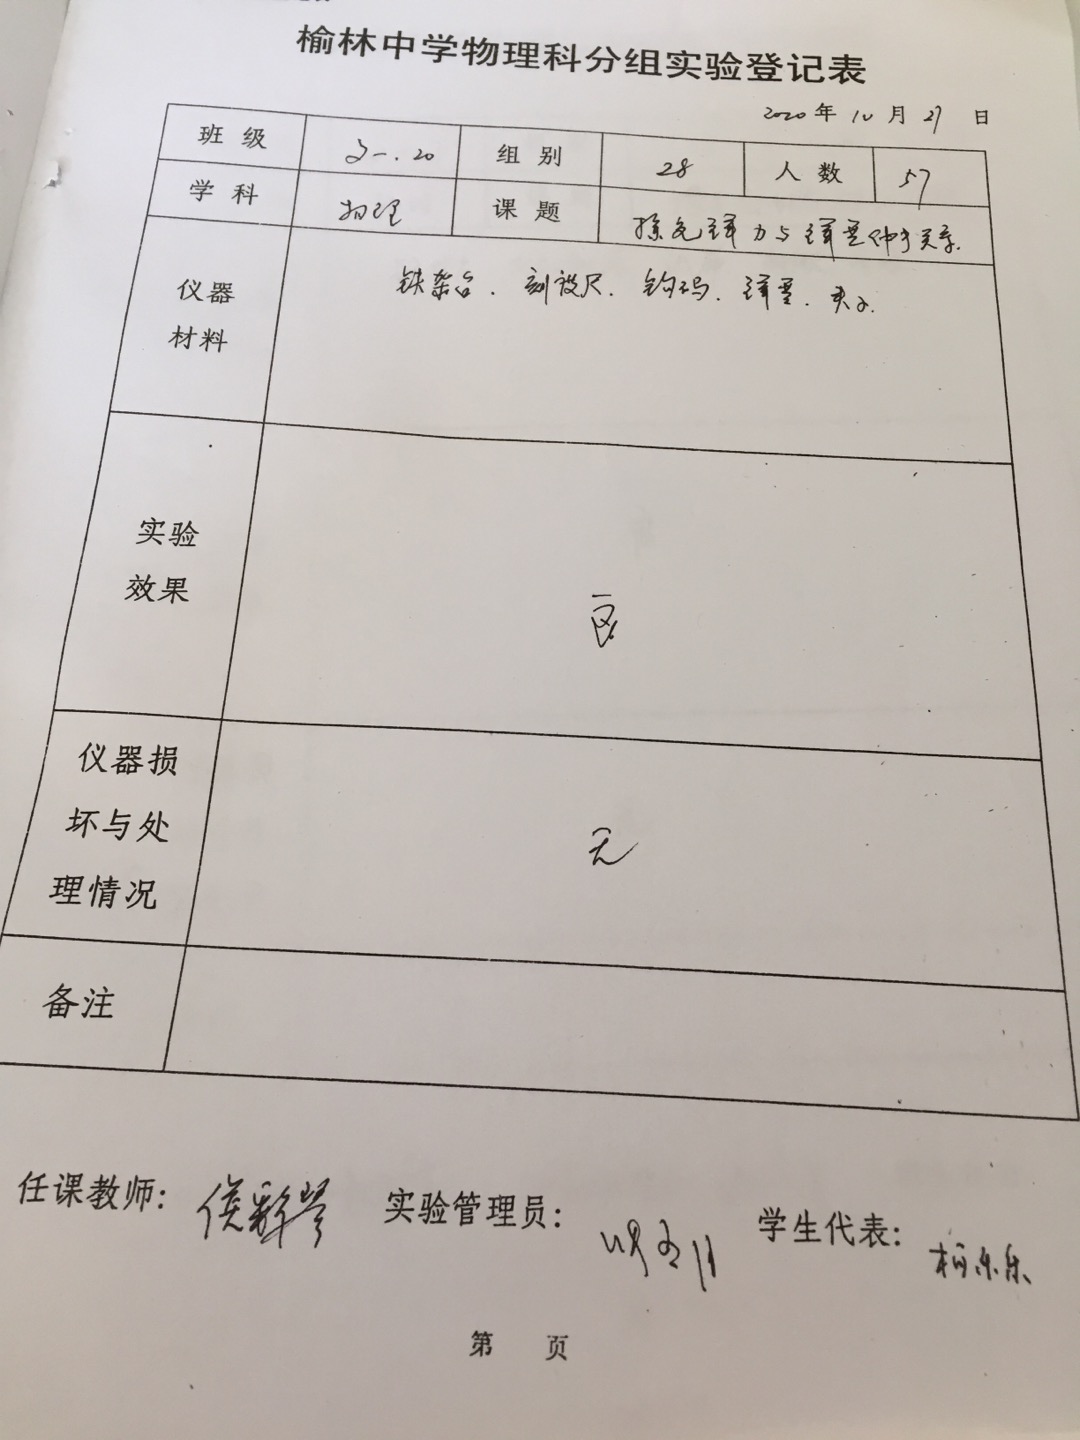 榆林中学物理科分组实验登记表
2020年10月27日
班级 高一.20 组别 28 人数 57
学科 物理 课题 探究弹力与弹簧伸长关系.
仪器 铁架台.刻度尺.钩码.弹簧.夹子.
材料
实验
效果 良
仪器损
坏与处 无
理情况
备注
任课教师: 侯彩琴 实验管理员: 学生代表: 柯乐乐
第 页